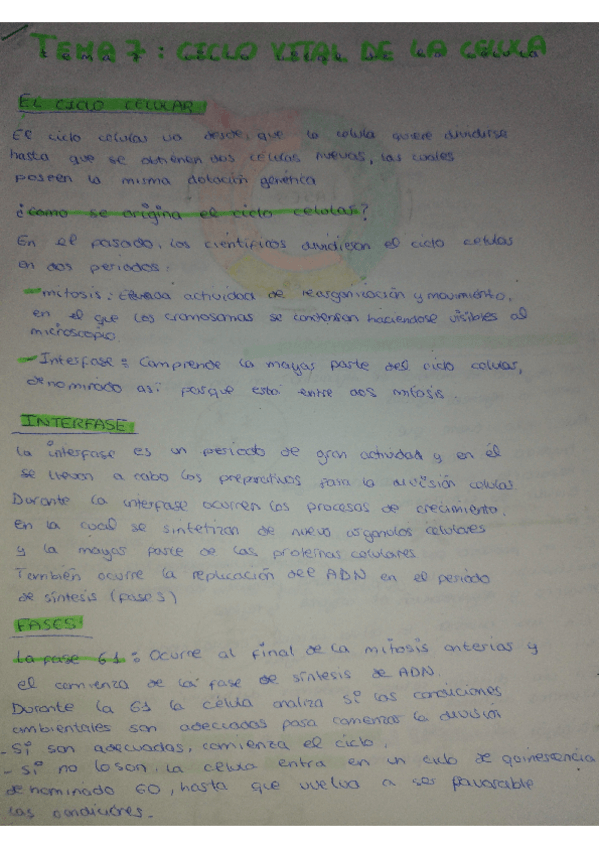 TEMA 7: CICLO VITAL DE LA CELULA
EL CICLO CELULAR
El ciclo celular va desde, que la celula quiere dividirse
hasta que se obtienen dos celulas nuevas, las cuales
poseen la misma dotación genética
¿como se origina el ciclo celular?
En el pasado, los científicos dividieron el ciclo celular
en dos periodos:
- mitosis: actividad de reorganización y movimiento,
en el que los cromosomas se condensan haciendose visibles al
microscopio.
- Interfase: Comprende la mayor parte del ciclo celular,
denominado así porque está entre dos mitosis.
INTERFASE
La interfase es un periodo de gran actividad y en él
se llevan a cabo los preparativos para la división celular.
Durante la interfase ocurren los procesos de crecimiento,
en la cual se sintetizan de nuevo organulos celulares
y la mayor parte de las proteínas celulares
También ocurre la replicación del ADN en el periodo
de síntesis (fase S)
FASES:
La fase G1: Ocurre al final de la mitosis anterior y
el comienzo de la fase de síntesis de ADN.
Durante la G1 la célula analiza si las condiciones
ambientales son adecuadas para comenzar la división
- Si son adecuadas, comienza el ciclo.
- Si no lo son, la célula entra en un ciclo de quinescencia
denominado G0, hasta que vuelva a ser favorable
las condiciones.